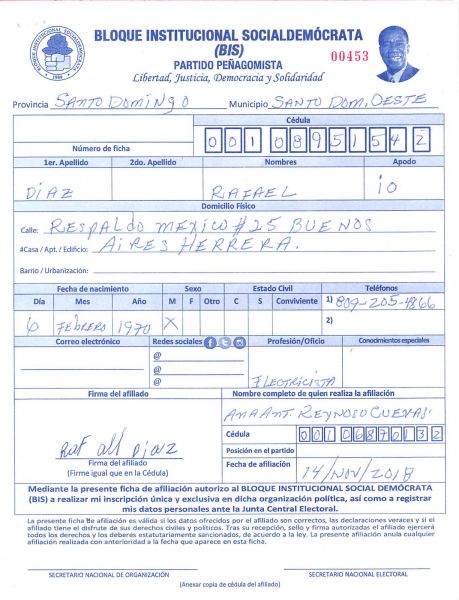 BLOQUE INSTITUCIONAL SOCIALDEMÓCRATA
(BIS)
00453
PARTIDO PEÑAGOMISTA
Libertad, Justicia, Democracia y Solidaridad
Provincia SANTO DOMINGO Municipio SANTO DOM. OESTE
Cédula
Número de ficha
1er. Apellido 2do. Apellido Nombres Apodo
DIAZ RAFAEL iO
Domicilio Físico
Calle: RESPALDO MEXICO #25 BUENOS
#Casa / Apt. / Edificio: AIRES HERRERA.
Barrio / Urbanización:
Fecha de nacimiento Sexo Estado Civil Teléfonos
Día Mes Año M F Otro C S Conviviente 1) 809-205-4866
6 FEBRERO 1970 X 2)
Correo electrónico Redes sociales Profesión/Oficio Conocimientos especiales
@
@
@ ELECTRICISTA
Firma del afiliado Nombre completo de quien realiza la afiliación
ANA ANT. REYNOSO CUEVAS
Cédula
Posición en el partido
Firma del afiliado
(Firme igual que en la Cédula)
Fecha de afiliación 14/NOV/2018
Mediante la presente ficha de afiliación autorizo al BLOQUE INSTITUCIONAL SOCIAL DEMÓCRATA
(BIS) a realizar mi inscripción única y exclusiva en dicha organización política, así como a registrar
mis datos personales ante la Junta Central Electoral.
La presente ficha de afiliación es válida si los datos ofrecidos por el afiliado son correctos, las declaraciones veraces y si el
afiliado tiene el disfrute de sus derechos civiles y políticos. Tras su recepción, sello y firma autorizados el afiliado ejercerá
todos los derechos y los deberes estatutariamente sancionados, de acuerdo a la ley. La presente afiliación anula cualquier
afiliación realizada con anterioridad a la fecha que aparece en esta ficha.
SECRETARIO NACIONAL DE ORGANIZACIÓN SECRETARIO NACIONAL ELECTORAL
(Anexar copia de cédula del afiliado)